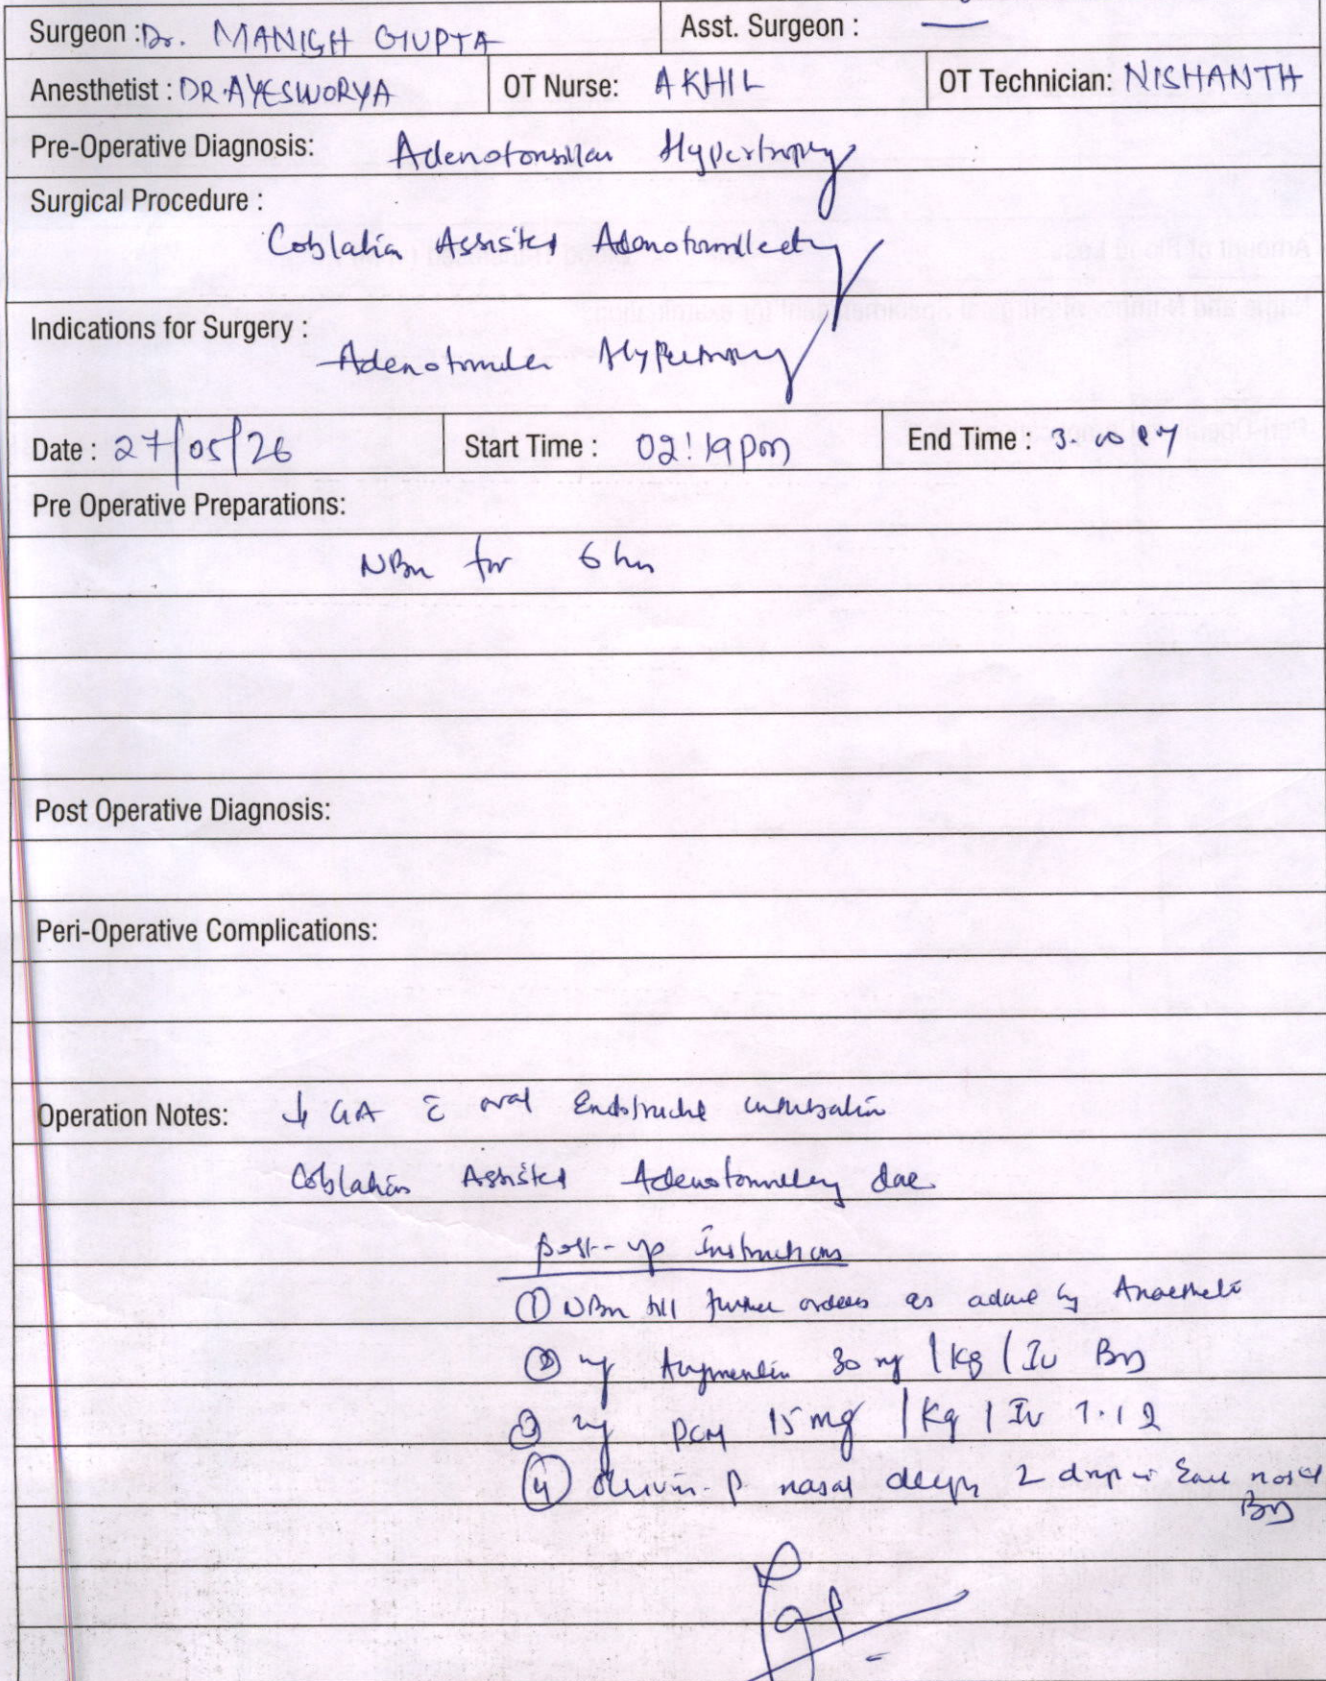 Surgeon : Dr. MANISH GUPTA Asst. Surgeon : —
Anesthetist : DR. AYESWORYA OT Nurse: AKHIL OT Technician: NISHANTH
Pre-Operative Diagnosis: Adenotonsillar Hypertrophy
Surgical Procedure :
Coblation Assisted Adenotonsillectomy
Indications for Surgery :
Adenotonsillar Hypertrophy
Date : 27/05/26 Start Time : 02:19pm End Time : 3. PM
Pre Operative Preparations:
NBM for 6 hrs
Post Operative Diagnosis:
Peri-Operative Complications:
Operation Notes: ↓ GA c̄ oral Endotracheal intubation
Coblation Assisted Adenotonsillectomy done
post-op instructions
① NBM till further orders as advised by
② inj Augmentin 30 mg / kg / IV BD
③ inj PCM 15 mg / Kg / IV
④ -P nasal drops 2 drops in each BD